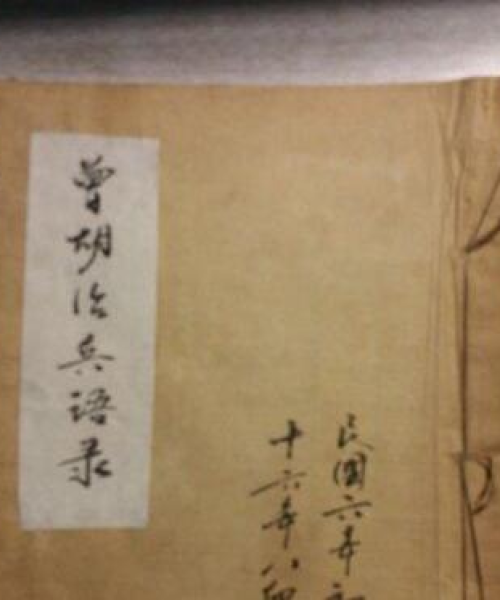 曾胡治兵语录
民国六年初
十六年八